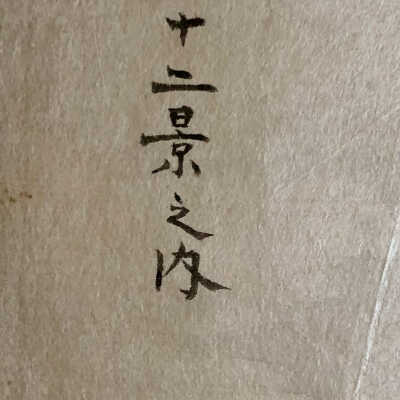 十二景之内